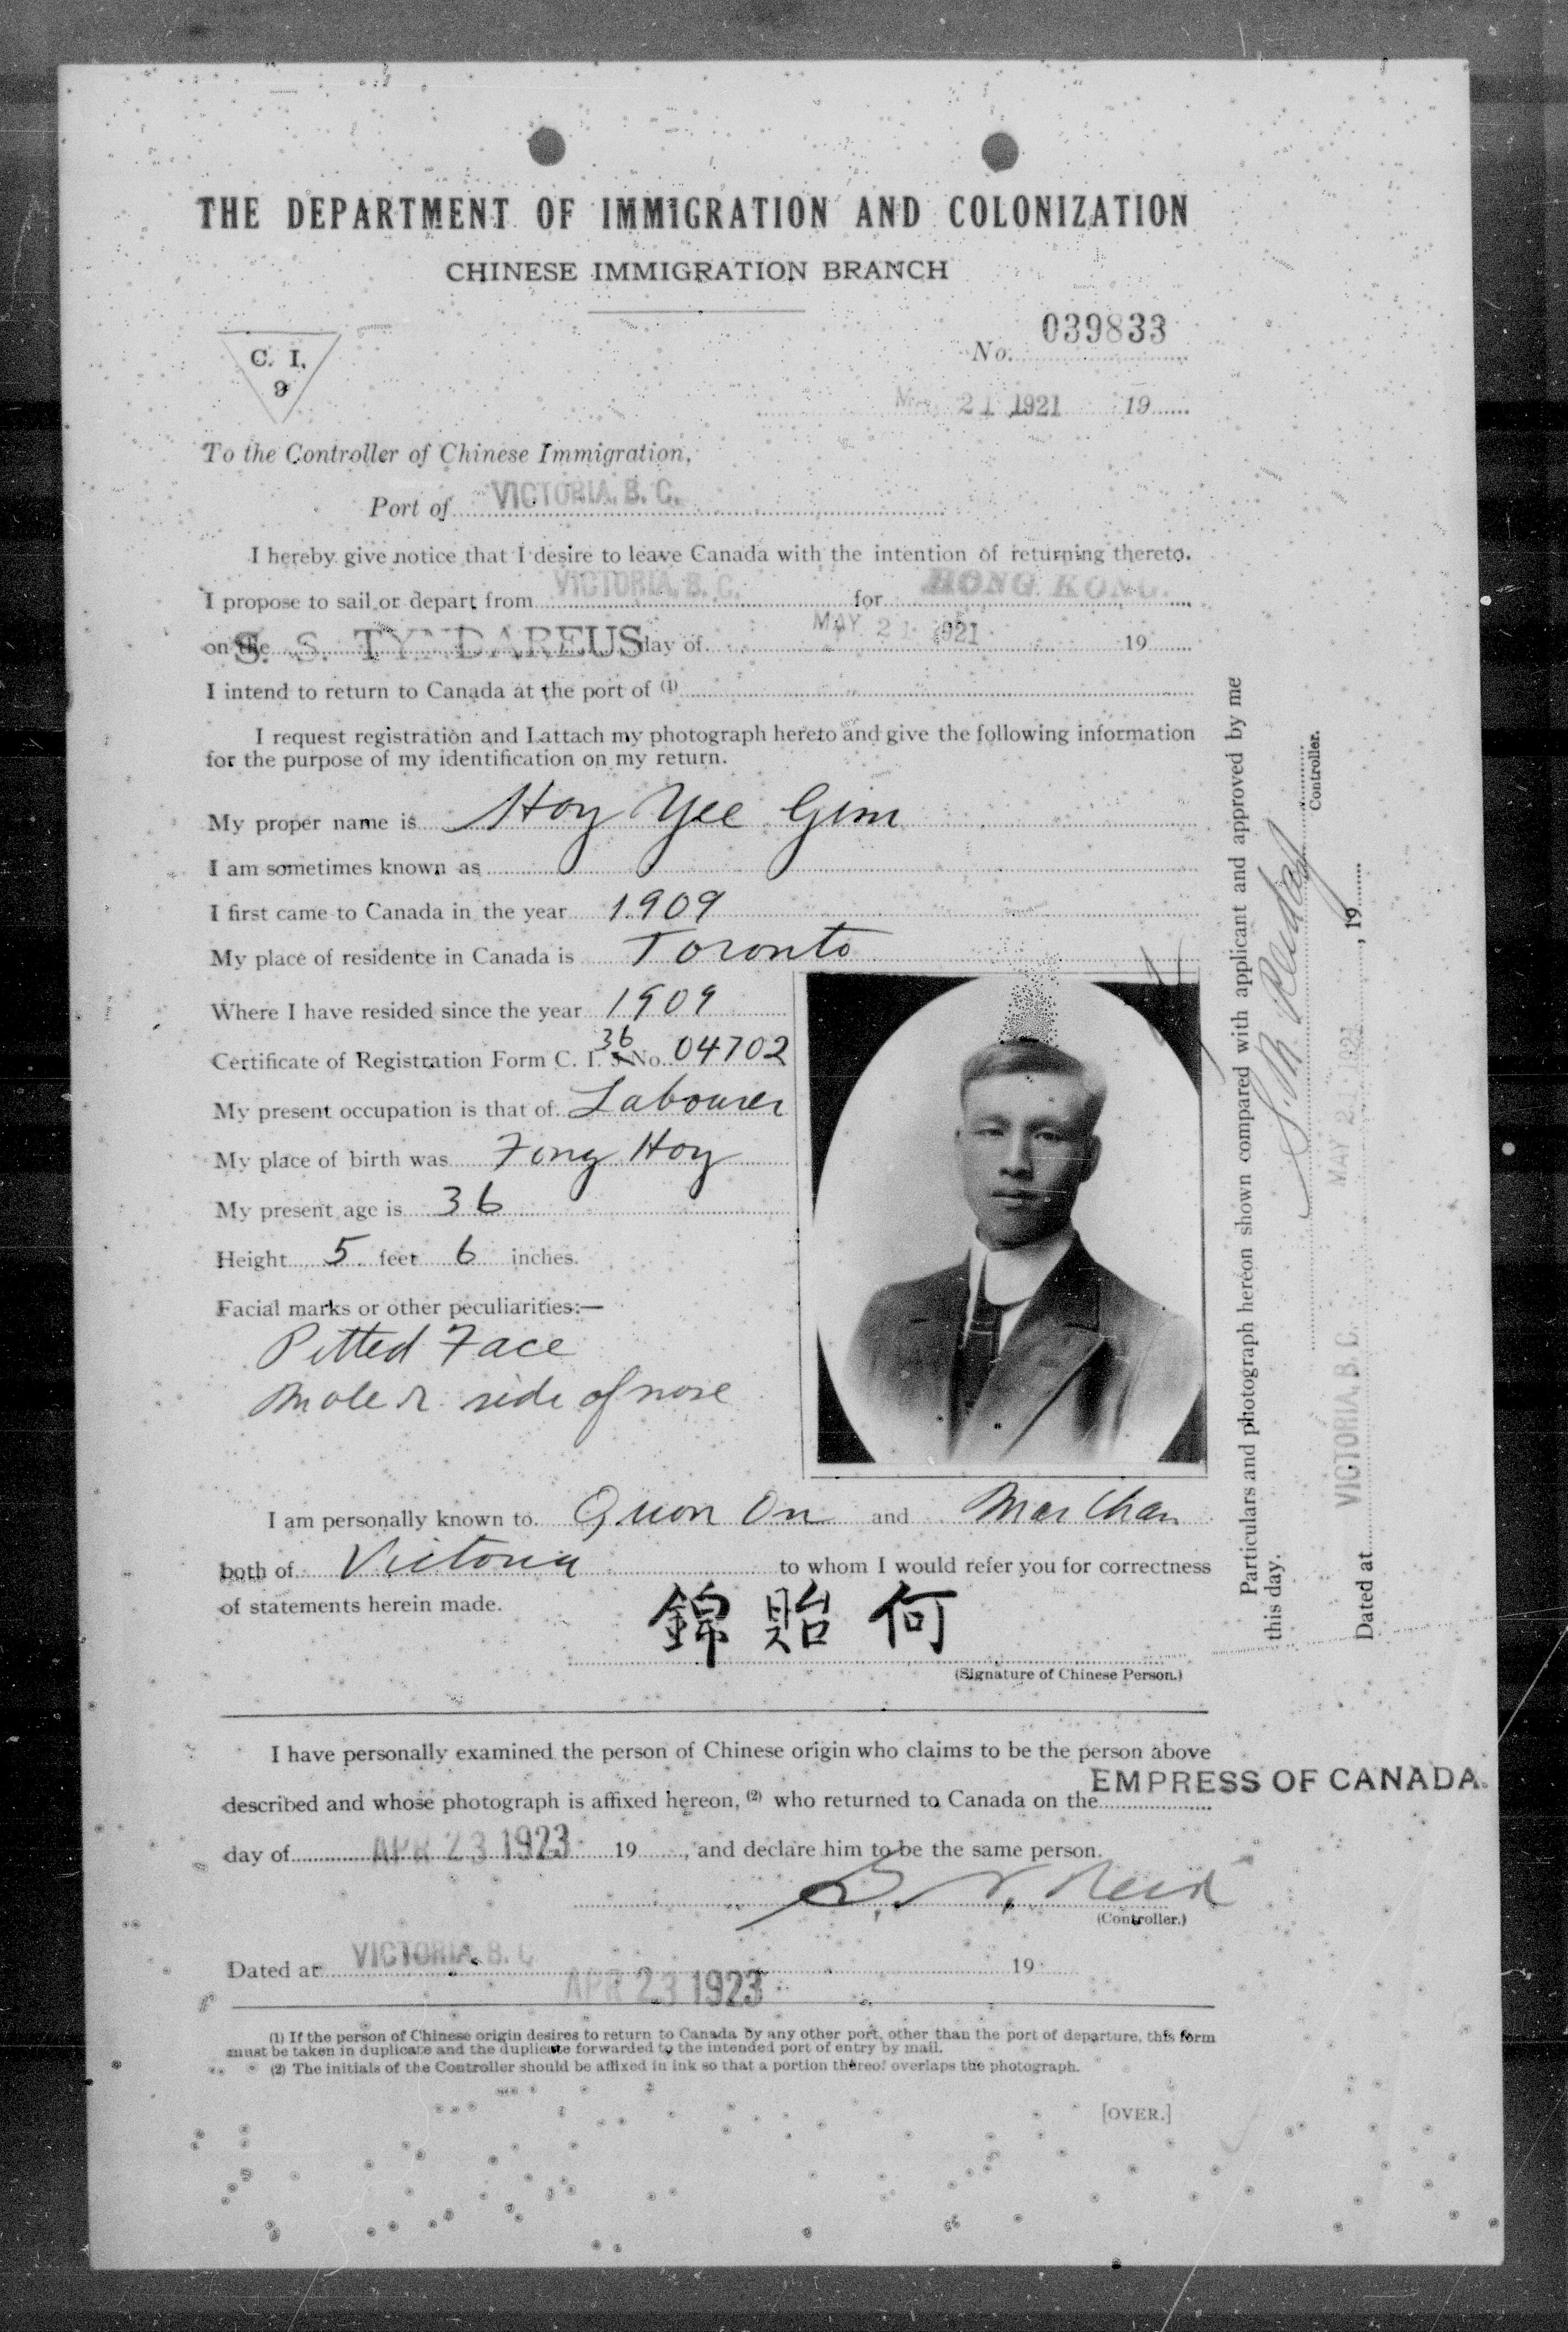 THE DEPARTMENT OF IMMIGRATION AND COLONIZATION
CHINESE IMMIGRATION BRANCH
C. I.
9
No. 039833
May 21 1921 19
To the Controller of Chinese Immigration,
Port of VICTORIA, B. C.
I hereby give notice that I desire to leave Canada with the intention of returning thereto.
I propose to sail or depart from VICTORIA, B. C. for HONG KONG.
on the S. S. TYNDAREUS day of MAY 21 1921 19
I intend to return to Canada at the port of (1)
I request registration and I attach my photograph hereto and give the following information
for the purpose of my identification on my return.
My proper name is Hoy Yee Gim
I am sometimes known as
I first came to Canada in the year 1909
My place of residence in Canada is Toronto
Where I have resided since the year 1909
Certificate of Registration Form C. I. 36 No. 04702
My present occupation is that of Labourer
My place of birth was Fong Hoy
My present age is 36
Height 5 feet 6 inches.
Facial marks or other peculiarities:—
Pitted Face
Mole R. side of nose
I am personally known to Quon On and Mar Chan
both of Victoria to whom I would refer you for correctness
of statements herein made.
錦 貽 何
(Signature of Chinese Person.)
I have personally examined the person of Chinese origin who claims to be the person above
described and whose photograph is affixed hereon, (2) who returned to Canada on the EMPRESS OF CANADA.
day of APR 23 1923 19 , and declare him to be the same person.
Reid
(Controller.)
Dated at VICTORIA, B. C. APR 23 1923 19
(1) If the person of Chinese origin desires to return to Canada by any other port, other than the port of departure, this form
must be taken in duplicate and the duplicate forwarded to the intended port of entry by mail.
(2) The initials of the Controller should be affixed in ink so that a portion thereof overlaps the photograph.
[OVER.]
Particulars and photograph hereon shown compared with applicant and approved by me
this day.
Controller.
Dated at VICTORIA, B. C. MAY 21 1921 , 19